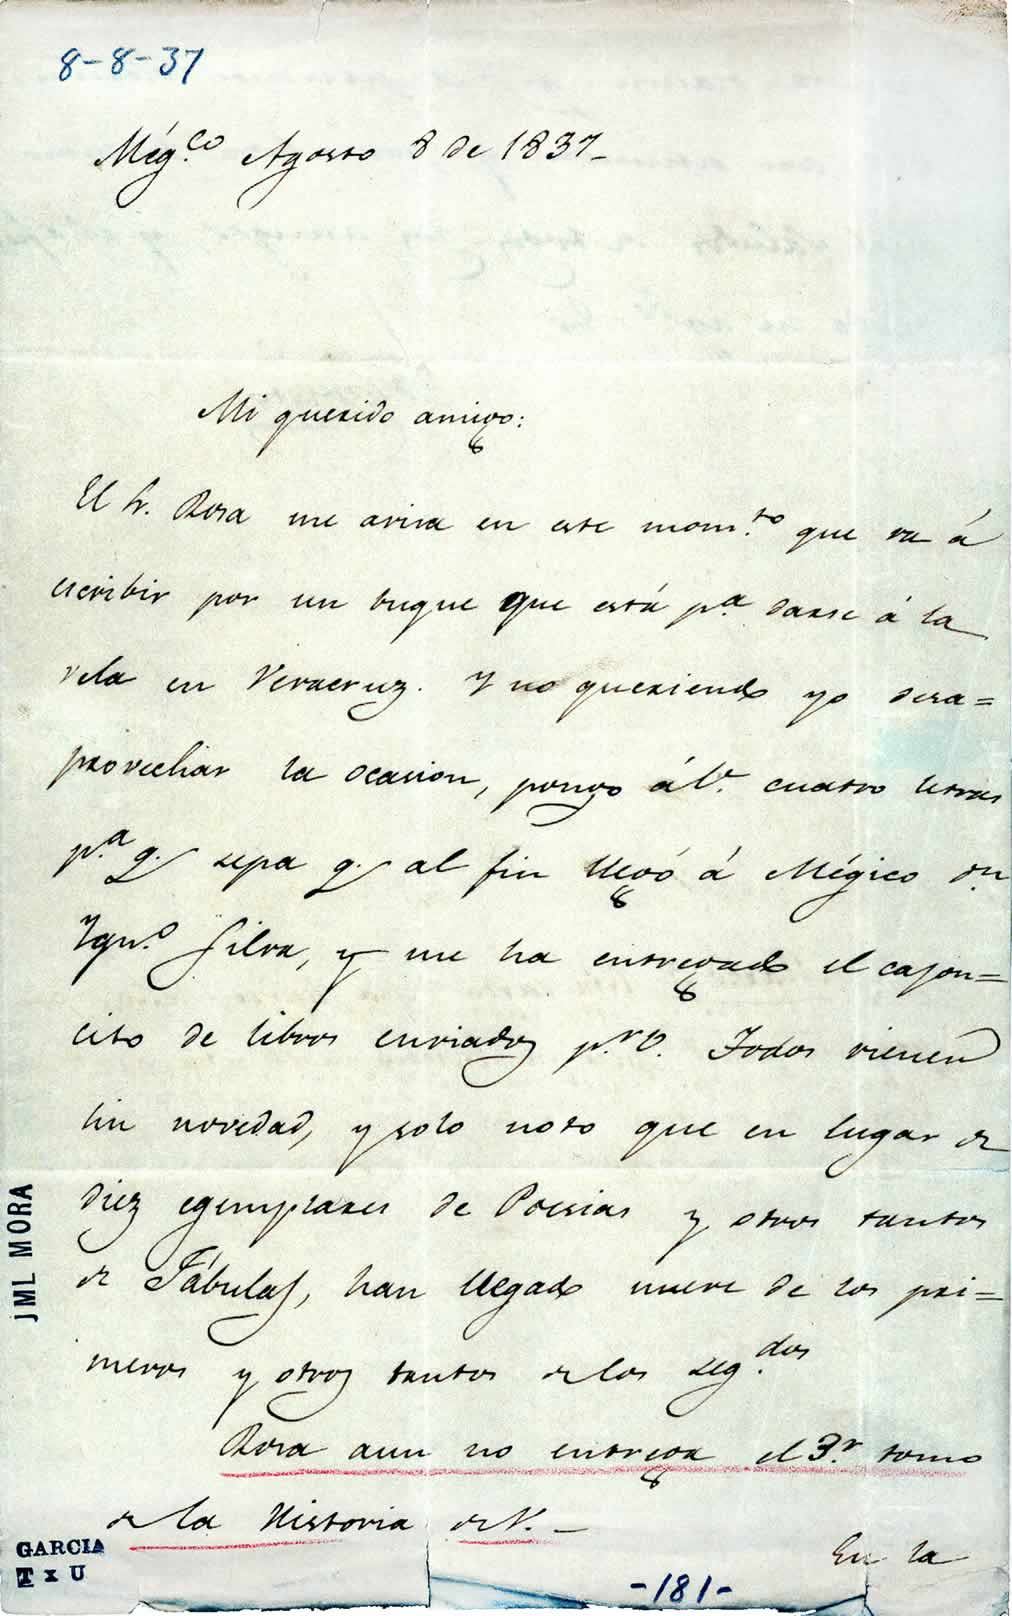 8-8-37
Még.co Agosto 8 de 1837_
Mi querido amigo:
El Sr. Rosa me avisa en este mom.to que va á
escribir por un buque que está p.a darse á la
vela en Veracruz. Y no queriendo yo desa=
provechar la ocasion, pongo á V. cuatro letras
p.a q. sepa q. al fin llegó á Mégico Dn
Ygn.o Silva, y me ha entregado el cajon=
cito de libros enviados p.r V. Todos vienen
sin novedad, y solo noto que en lugar de
diez egemplares de Poesias y otros tantos
de Fábulas, han llegado nueve de los pri=
meros y otros tantos de los seg.dos
Rosa aun no entrega el 3.r tomo
de la Historia de V. _
En la
JML MORA
GARCIA
T x U
-181-